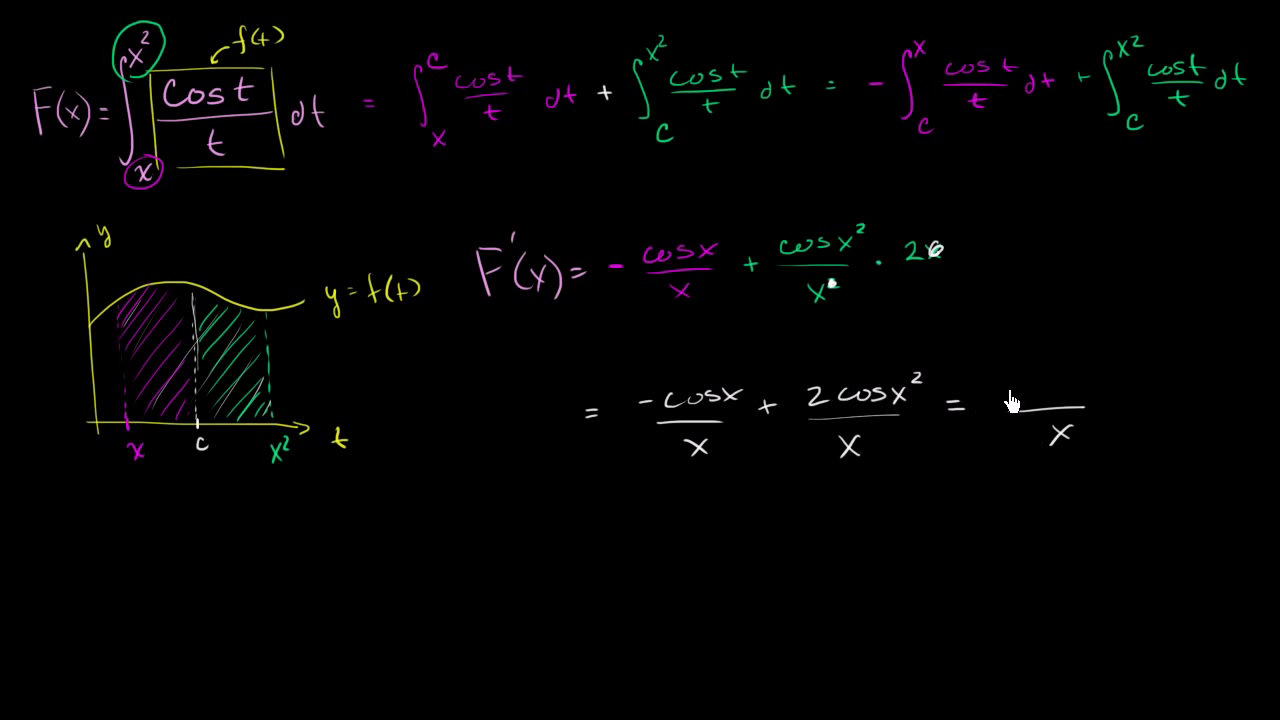 f(t)
F(x) = ∫_x^{x²} cos t / t dt = ∫_x^c cos t / t dt + ∫_c^{x²} cos t / t dt = - ∫_c^x cos t / t dt + ∫_c^{x²} cos t / t dt
y
y = f(t)
x c x² t
F'(x) = - cos x / x + cos x² / x² · 2x
= -cos x / x + 2 cos x² / x = / x